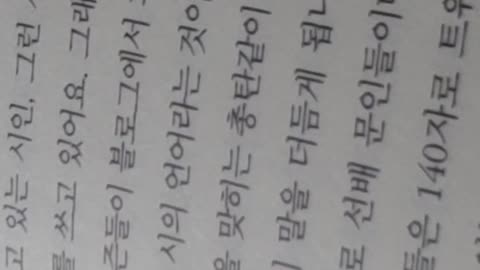 고 있는 시인, 그런
쓰고 있어요. 그래
존들이 블로그에서
시의 언어라는 것이
맞히는 총탄같이
말을 더듬게 됩니
로 선배 문인들이
들은 140자로 트위